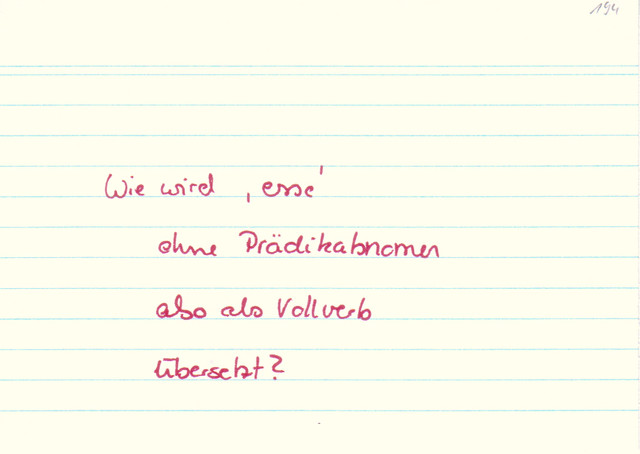 194
Wie wird ‚esse'
ohne Prädikatsnomen
also als Vollverb
übersetzt?